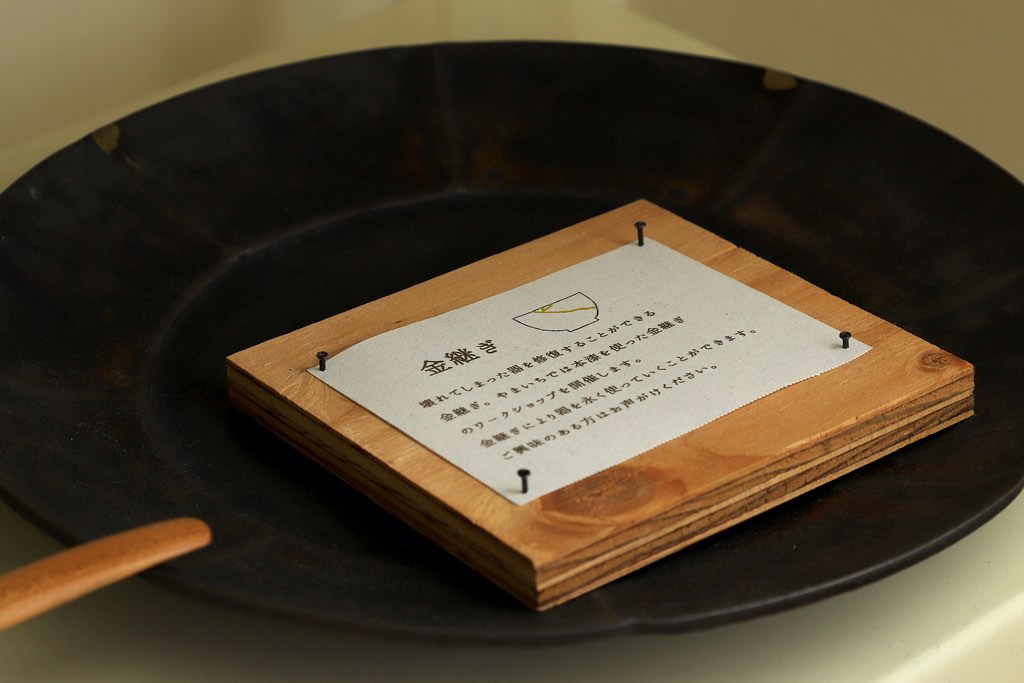 金継ぎ
壊れてしまった器を修復することができる
金継ぎ。やまいちでは本漆を使った金継ぎ
のワークショップを開催します。
金継ぎにより器を永く使っていくことができます。
ご興味のある方はお声がけください。